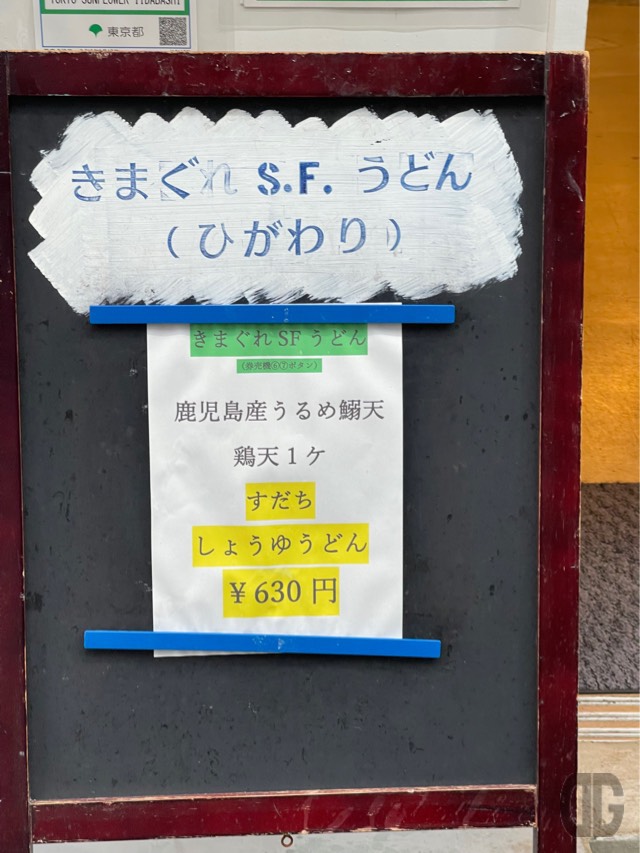 TOKYO SUNFLOWER IIDABASHI
東京都
きまぐれ S.F. うどん
(ひがわり)
きまぐれSFうどん
(券売機⑥⑦ボタン)
鹿児島産うるめ鰯天
鶏天1ケ
すだち
しょうゆうどん
¥630円
DG